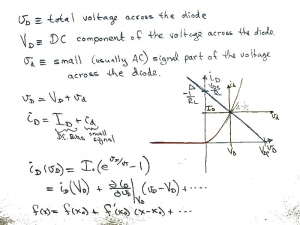 v_D ≡ total voltage across the diode
V_D ≡ DC component of the voltage across the diode.
v_d ≡ small (usually AC) signal part of the voltage
across the diode.
v_D = V_D + v_d
i_D = I_D + i_d
DC Bias small
signal
i_D(v_D) = I₀(e^{v_D/v_T} - 1)
= i_D(V_D) + ∂i_D/∂v_D |_{V_D} (v_D - V_D) + ....
f(x) = f(x₀) + f'(x₀)(x - x₀) + ...
i_D
i_d
-1/R_L
I_D
v_d
V_D
v_D